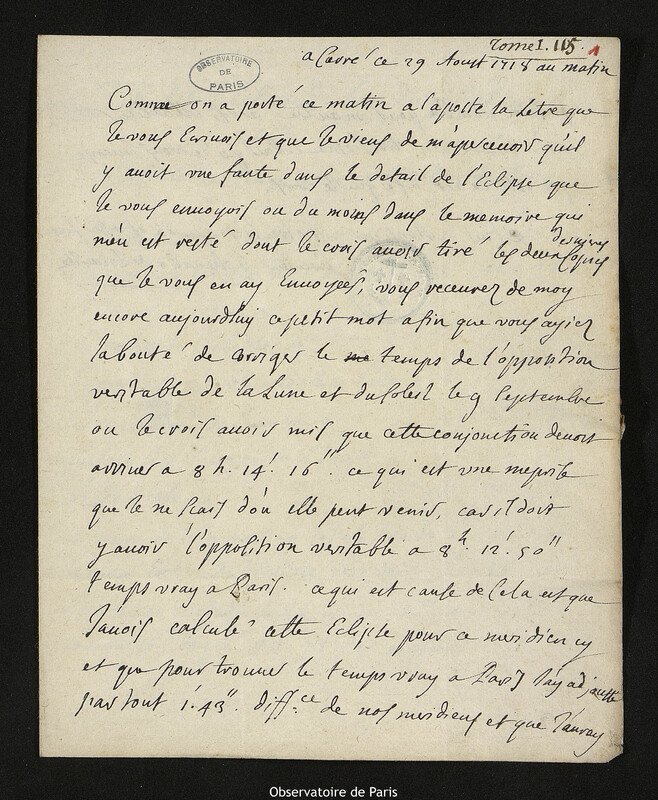 Tome I. 115. 1
OBSERVATOIRE
DE
PARIS
a Cavré ce 29 Aoust 1718 au matin
Comme on a porté ce matin a la poste la Letre que
Je vous Ecrivois et que Je viens de m'apercevoir qu'il
y avoit une faute dans le detail de l'Eclipse que
Je vous envoyois ou du moins dans le memoire qui
m'en est resté dont Je crois avoir tiré les deux dernieres Copies
que Je vous en ay Envoyées, vous recevrez de moy
encore aujourdhuy ce petit mot afin que vous ayiez
la bonté de Corriger le temps de l'opposition
veritable de la Lune et du Soleil le 9 Septembre
ou Je crois avoir mis que cette conjonction devoit
arriver a 8 h. 14'. 16". ce qui est une meprise
que Je ne scais d'où elle peut venir, car il doit
y avoir l'opposition veritable a 8h. 12'. 50"
temps vray a Paris. ce qui est cause de Cela est que
J'avois calculé cette Eclipse pour ce meridien cy
et que pour trouver le temps vray a Paris J'ay adjousté
partout 1'. 43". diff.ce de nos meridiens et que J'auray
Observatoire de Paris